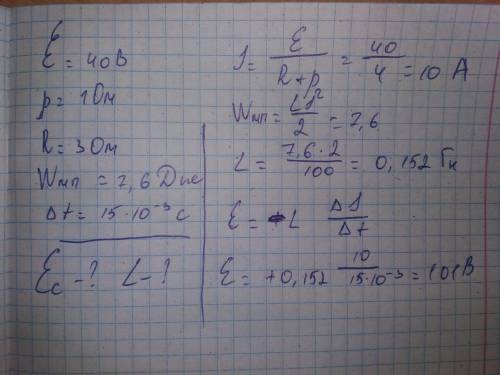 Ɛ = 40 В
р = 1 Ом
R = 3 Ом
Wмп = 7,6 Дж
Δt = 15·10⁻³ с
Ɛc - ? L - ?
J = Ɛ / (R + р) = 40 / 4 = 10 А
Wмп = LJ² / 2 = 7,6
L = 7,6·2 / 100 = 0,152 Гн
Ɛ = L ΔJ / Δt
Ɛ = +0,152 10 / 15·10⁻³ = 101 В